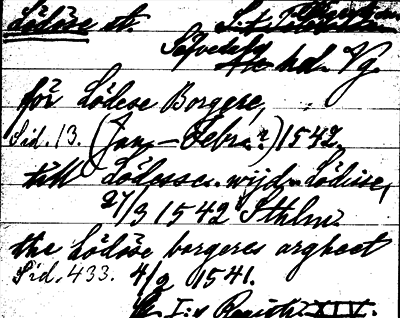 Lödöse st.
Sävedals hd. Vg.
för Lödese Borgere,
Sid. 13. (Jan.-Febr.?) 1542.
till Lödesse. wijd. Lödisse,
27/3 1542 Sthlm.
the Lödöse borgeres argheet
Sid. 433. 4/9 1541.
G. I:s Registr. XIV.